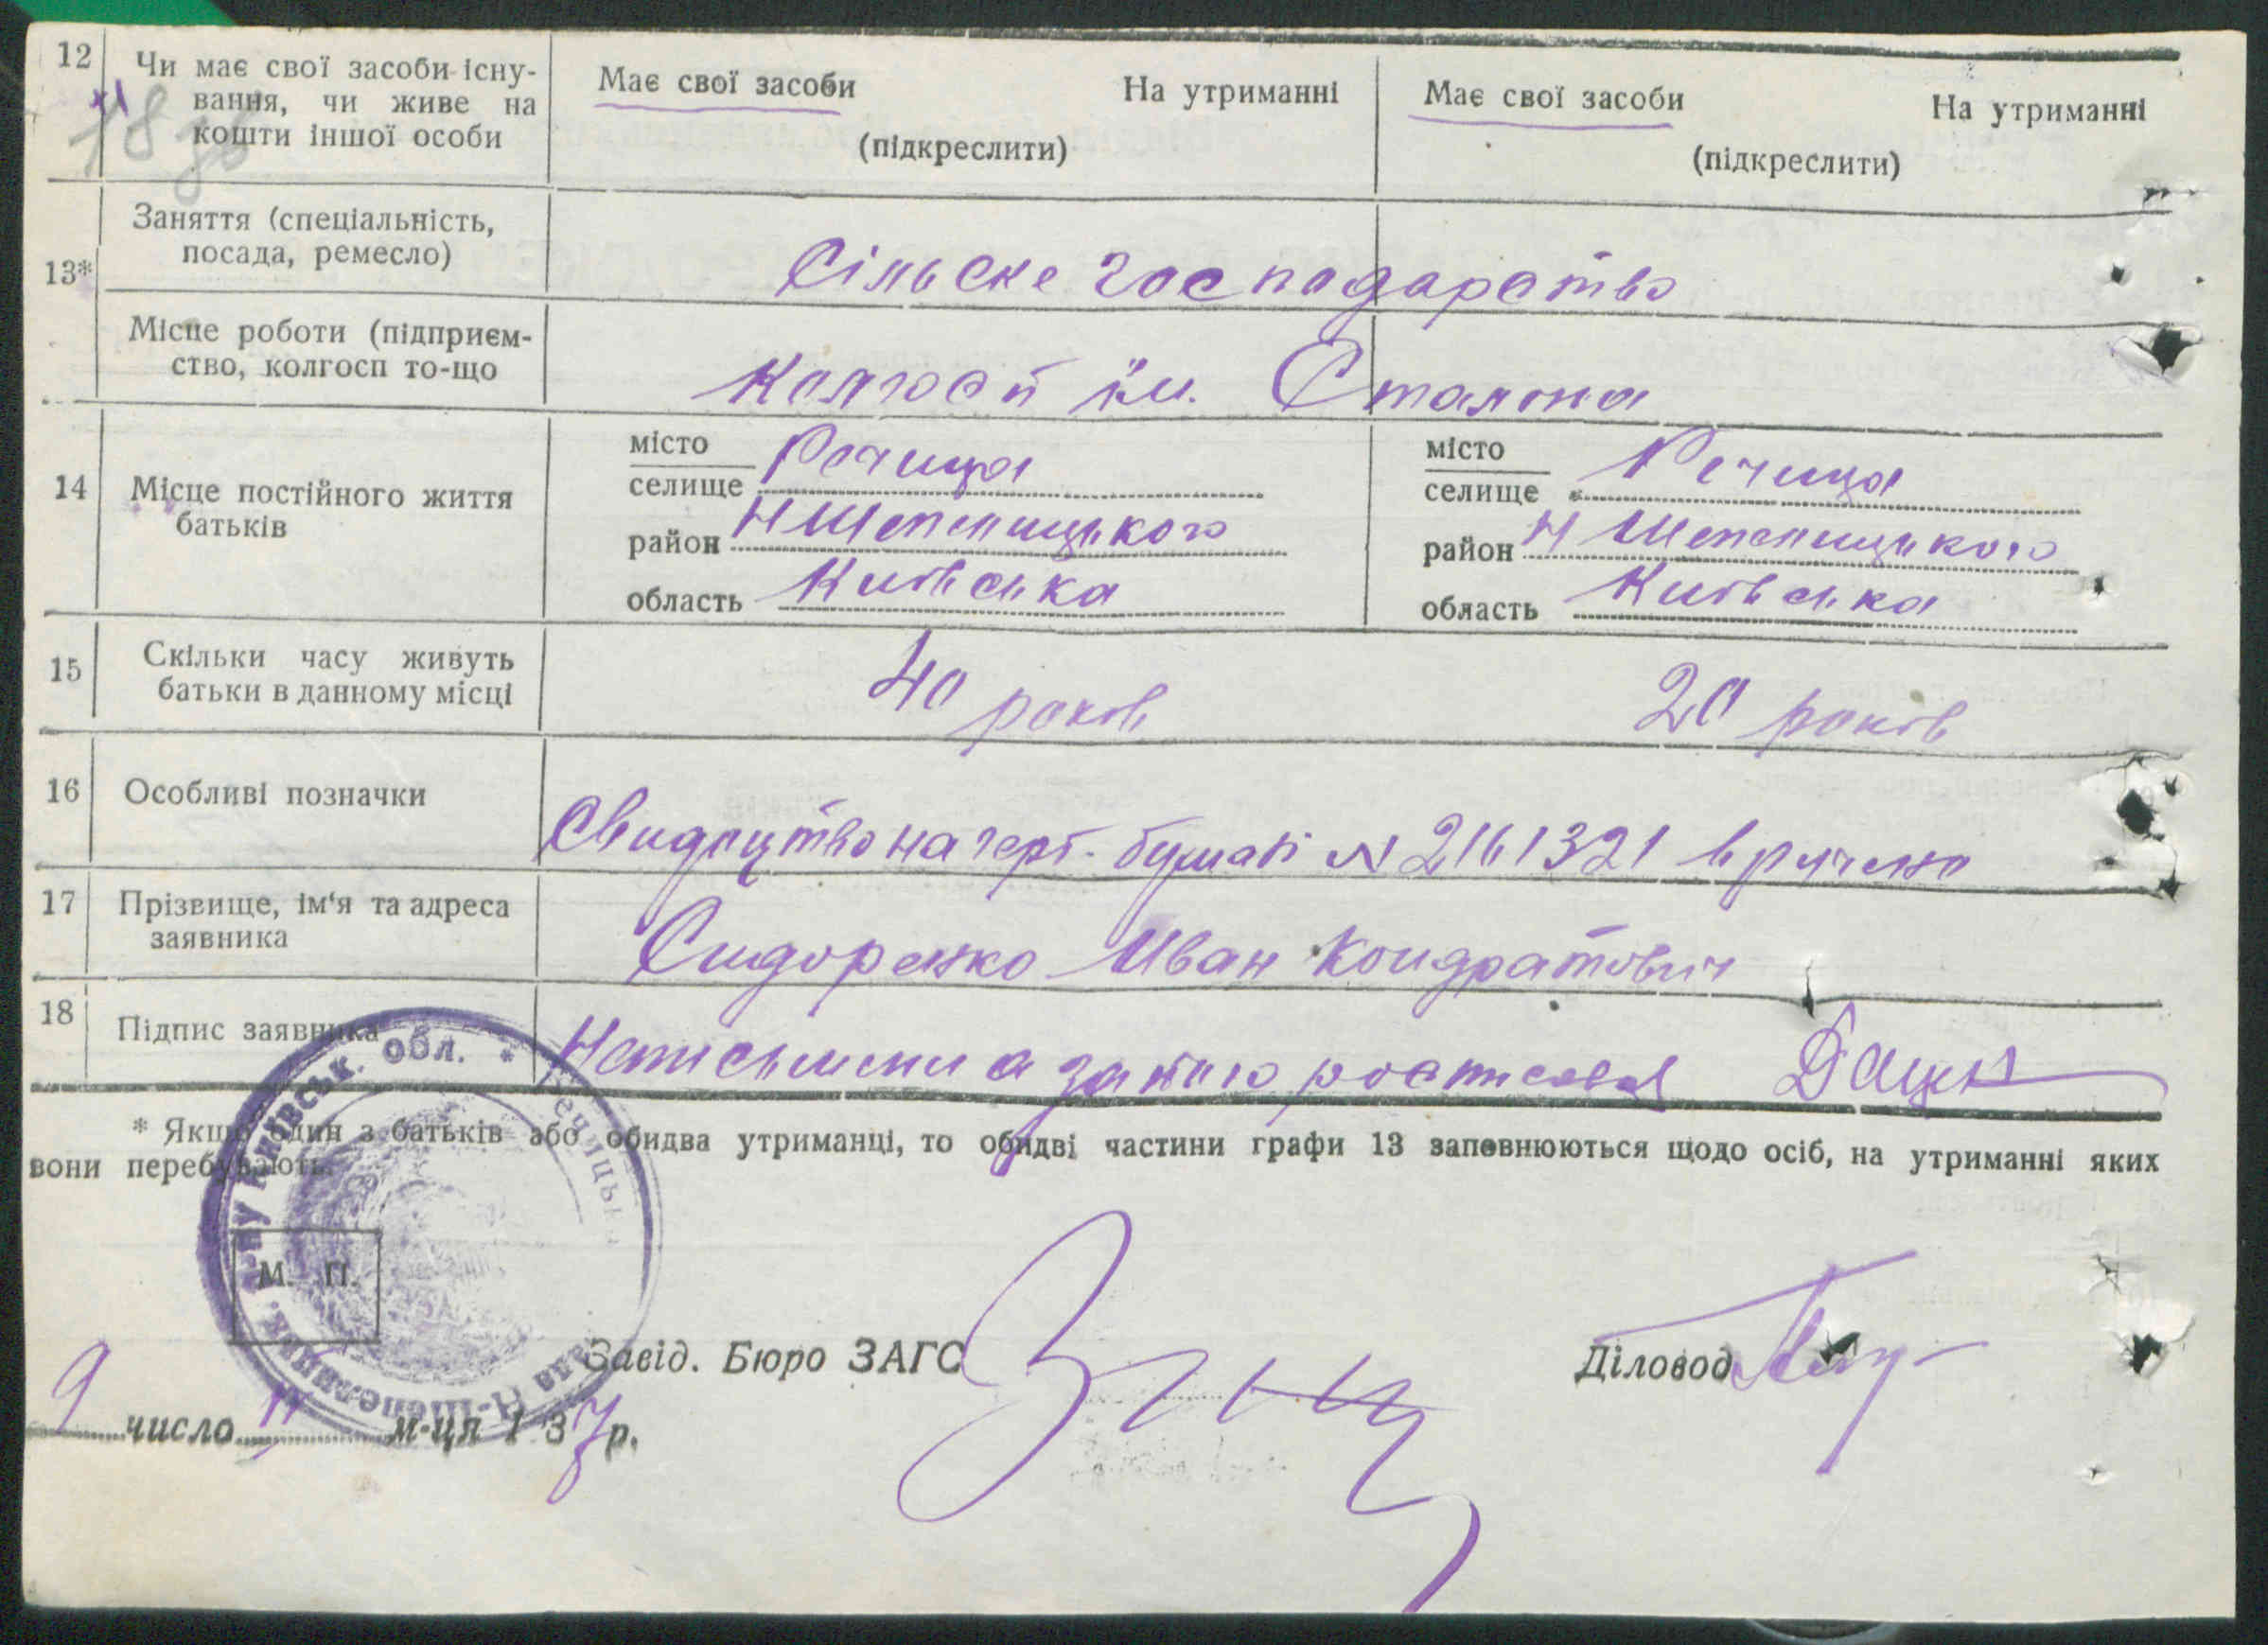 12 Чи має свої засоби існу-
вання, чи живе на
кошти іншої особи
Має свої засоби На утриманні
(підкреслити)
Має свої засоби На утриманні
(підкреслити)
13*
Заняття (спеціальність,
посада, ремесло)
Сільске господарство
Місце роботи (підприєм-
ство, колгосп то-що
Колгосп їм. Сталина
14 Місце постійного життя
батьків
місто
селище Речица
район НШепелицького
область Київська
місто
селище Речица
район НШепелицького
область Київська
15 Скільки часу живуть
батьки в данному місці
40 років 20 років
16 Особливі позначки
Свидоцтво на герб. бумаві № 2161321 вручено
17 Прізвище, ім'я та адреса
заявника
Сидоренко Иван Кондратович
18 Підпис заявника
Неписьмени а за його росписався
* Якщо один з батьків або обидва утриманці, то обидві частини графи 13 заповнюються щодо осіб, на утриманні яких
вони перебувають.
М. П.
Завід. Бюро ЗАГС
Діловод
9 число 11 м-ця 1 37 р.